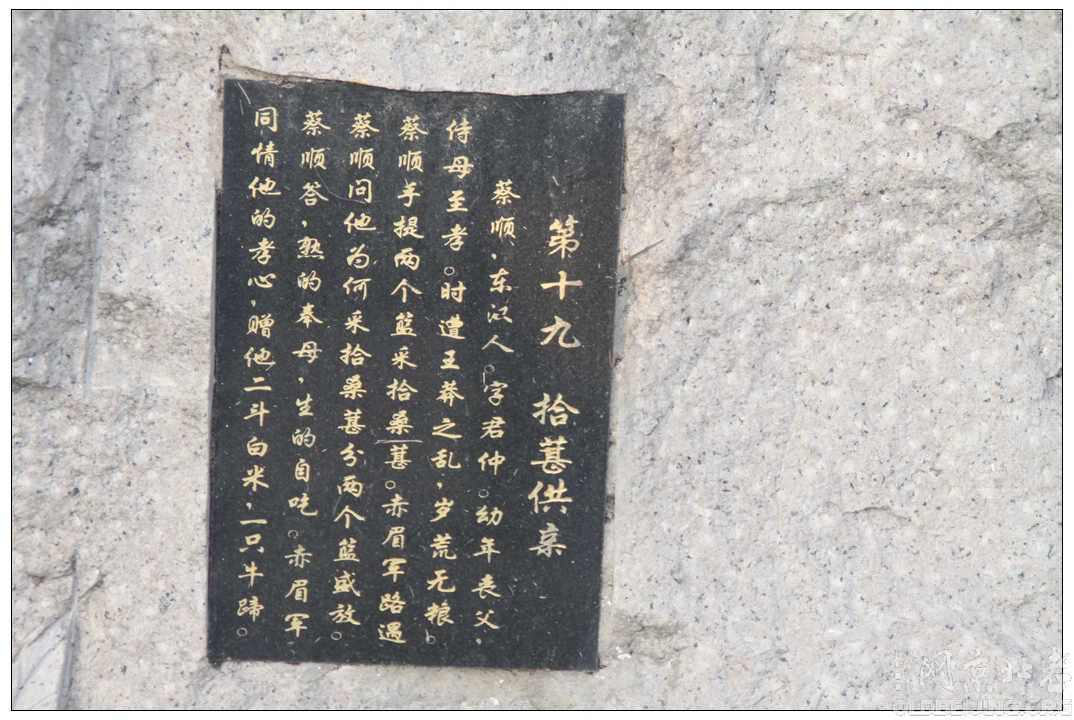 第十九 拾葚供亲
蔡顺，东汉人。字君仲。幼年丧父，
侍母至孝。时遭王莽之乱，岁荒无粮。
蔡顺手提两个篮采拾桑葚。赤眉军路遇
蔡顺问他为何采拾桑葚分两个篮盛放。
蔡顺答，熟的奉母，生的自吃。赤眉军
同情他的孝心，赠他二斗白米，一只牛蹄。
老北京网
OLDBEIJING.ORG